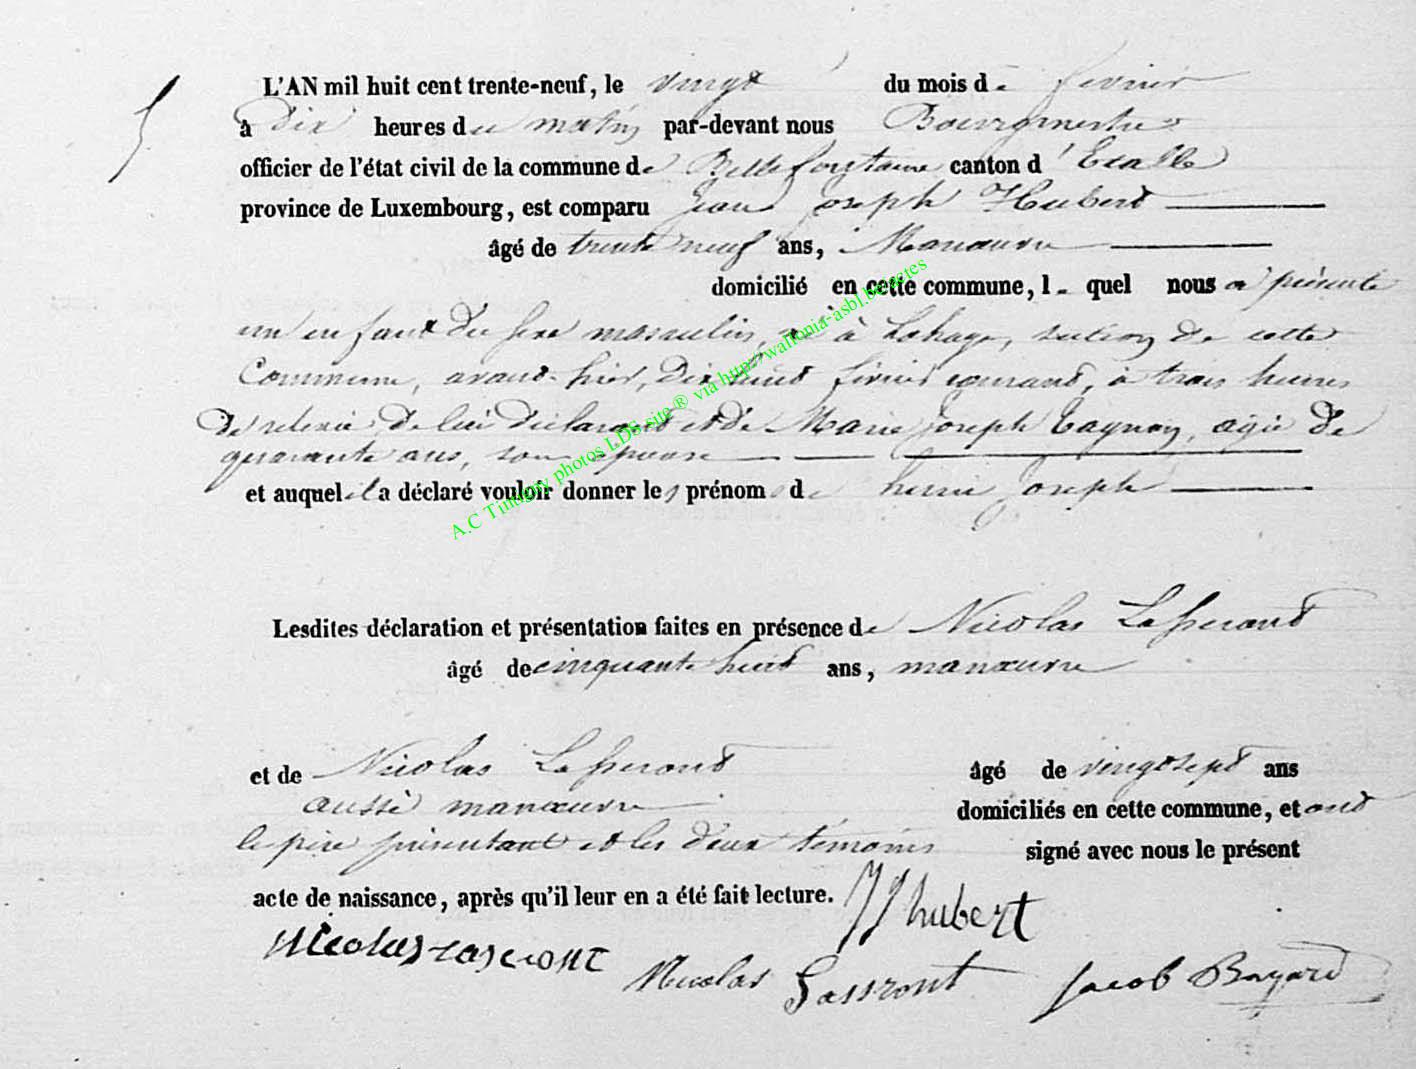 5
L'AN mil huit cent trente-neuf, le vingt du mois de fevrier
à Dix heures du matin par-devant nous Bourgmestre
officier de l'état civil de la commune de Bellefontaine canton d'Etalle
province de Luxembourg, est comparu Jean Joseph Hubert
âgé de trente neuf ans, Manœuvre
domicilié en cette commune, le quel nous a présenté
un enfant du sexe masculin, né à Lahage, section de cette
Commune, avant-hier, Dix huit février courant, à trois heures
De relevée De lui déclarant et de Marie Joseph Tagnon, agée De
quarante ans, son epouse
et auquel il a déclaré vouloir donner les prénoms de henri Joseph
Lesdites déclaration et présentation faites en présence de Nicolas
âgé de cinquante huit ans, manœuvre
et de Nicolas âgé de vingt sept ans
aussi manœuvre domiciliés en cette commune, et ont
le père présentant et les deux témoins signé avec nous le présent
acte de naissance, après qu'il leur en a été fait lecture.
JJ hubert
Nicolas
Nicolas Jacob Bayard
A.C Tintigny photos LDS site ® via http://wallonia-asbl.be/actes